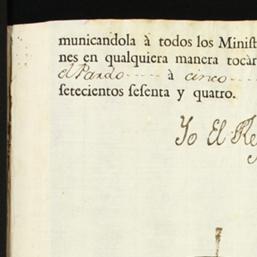 municandola à todos los Minist
nes en qualquiera manera tocàr
el Pardo ---- à cinco ----
setecientos sesenta y quatro.
Yo El Re